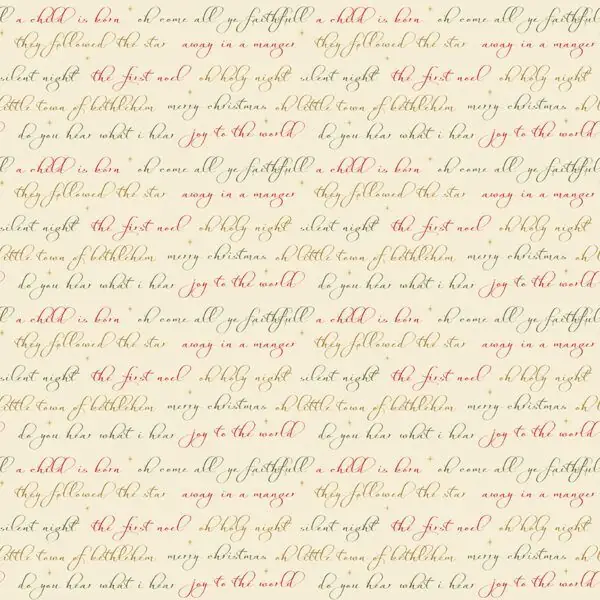 a child is born oh come all ye faithfull a child is born oh come all ye faithfull
they followed the star away in a manger they followed the star away in a manger
silent night the first noel oh holy night silent night the first noel oh holy night
little town of bethlehem merry christmas oh little town of bethlehem merry christmas oh
do you hear what i hear joy to the world do you hear what i hear joy to the world
a child is born oh come all ye faithfull a child is born oh come all ye faithfull
they followed the star away in a manger they followed the star away in a manger
silent night the first noel oh holy night silent night the first noel oh holy night
little town of bethlehem merry christmas oh little town of bethlehem merry christmas oh
do you hear what i hear joy to the world do you hear what i hear joy to the world
a child is born oh come all ye faithfull a child is born oh come all ye faithfull
they followed the star away in a manger they followed the star away in a manger
silent night the first noel oh holy night silent night the first noel oh holy night
little town of bethlehem merry christmas oh little town of bethlehem merry christmas oh
do you hear what i hear joy to the world do you hear what i hear joy to the world
a child is born oh come all ye faithfull a child is born oh come all ye faithfull
they followed the star away in a manger they followed the star away in a manger
silent night the first noel oh holy night silent night the first noel oh holy night
little town of bethlehem merry christmas oh little town of bethlehem merry christmas oh
do you hear what i hear joy to the world do you hear what i hear joy to the world